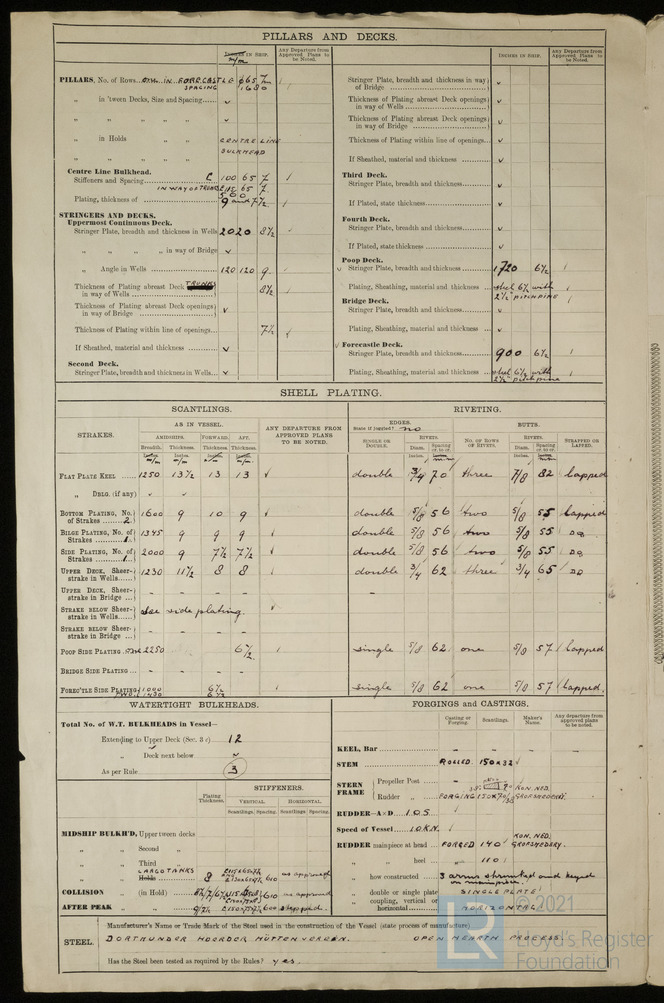 PILLARS AND DECKS.
Inches in Ship. m/m
Any Departure from Approved Plans to be Noted.
Inches in Ship.
Any Departure from Approved Plans to be Noted.
PILLARS, No. of Rows IN FORECASTLE 65 7
SPACING 1680
„ in 'tween Decks, Size and Spacing
„ „ „ „
„ in Holds „ CENTRE LINE
„ „ „ „ BULKHEAD
Centre Line Bulkhead.
Stiffeners and Spacing 100 65 7
IN WAY OF TRUNK
Plating, thickness of 9 and 7½
STRINGERS AND DECKS.
Uppermost Continuous Deck.
Stringer Plate, breadth and thickness in Wells 2020 8½
„ „ „ „ in way of Bridge
„ Angle in Wells 120 120 9
Thickness of Plating abreast Deck TRUNKS in way of Wells 8½
Thickness of Plating abreast Deck openings in way of Bridge
Thickness of Plating within line of openings 7½
If Sheathed, material and thickness
Second Deck.
Stringer Plate, breadth and thickness in Wells
Stringer Plate, breadth and thickness in way of Bridge
Thickness of Plating abreast Deck openings in way of Wells
Thickness of Plating abreast Deck openings in way of Bridge
Thickness of Plating within line of openings
If Sheathed, material and thickness
Third Deck.
Stringer Plate, breadth and thickness
If Plated, state thickness
Fourth Deck.
Stringer Plate, breadth and thickness
If Plated, state thickness
Poop Deck.
Stringer Plate, breadth and thickness 1720 6½
Plating, Sheathing, material and thickness steel 6½ with 2½" PITCHPINE
Bridge Deck.
Stringer Plate, breadth and thickness
Plating, Sheathing, material and thickness
Forecastle Deck.
Stringer Plate, breadth and thickness 900 6½
Plating, Sheathing, material and thickness steel 6½ with 2½" pitch pine
SHELL PLATING.
SCANTLINGS.
RIVETING.
STRAKES.
AS IN VESSEL.
ANY DEPARTURE FROM APPROVED PLANS TO BE NOTED.
EDGES.
State if joggled? no
BUTTS.
AMIDSHIPS. FORWARD. AFT.
Breadth. Thickness. Thickness. Thickness.
SINGLE OR DOUBLE.
RIVETS. Diam. Spacing cr. to cr.
NO. OF ROWS OF RIVETS.
RIVETS. Diam. Spacing cr. to cr.
STRAPPED OR LAPPED.
FLAT PLATE KEEL 1250 13½ 13 13 double ¾ 70 three 7/8 82 lapped
„ DBLG. (if any)
BOTTOM PLATING, NO. of Strakes 2 1600 9 10 9 double 5/8 56 two 5/8 55 lapped
BILGE PLATING, NO. of Strakes 1 1345 9 9 9 double 5/8 56 two 5/8 55 DO
SIDE PLATING, NO. of Strakes 1 2000 9 7½ 7½ double 5/8 56 two 5/8 55 DO
UPPER DECK, Sheer-strake in Wells 1230 11½ 8 8 double ¾ 62 three ¾ 65 DO
UPPER DECK, Sheer-strake in Bridge
STRAKE BELOW Sheer-strake in Wells see side plating.
STRAKE BELOW Sheer-strake in Bridge
POOP SIDE PLATING 2250 6½ single 5/8 62 one 5/8 57 lapped
BRIDGE SIDE PLATING
FOREC'TLE SIDE PLATING 6½ single 5/8 62 one 5/8 57 lapped.
WATERTIGHT BULKHEADS.
Total No. of W.T. BULKHEADS in Vessel—
Extending to Upper Deck (Sec. 3 c) 12
„ Deck next below
As per Rule 3
Plating Thickness.
STIFFENERS.
VERTICAL. HORIZONTAL.
Scantlings. Spacing. Scantlings. Spacing.
MIDSHIP BULKH'D, Upper tween decks
„ „ Second „
„ „ Third „
CARGO TANKS
„ „ Holds 8 610 as approved
COLLISION „ (in Hold) 610 as approved
AFTER PEAK „ „ 600 stepped.
FORGINGS and CASTINGS.
Casting or Forging. Scantlings. Maker's Name. Any departure from approved plans to be noted.
KEEL, Bar
STEM ROLLED. 150 x 32
STERN FRAME
Propeller Post
Rudder „ FORGING KON. NED. GROFSMEDERY.
RUDDER—A × D 105
Speed of Vessel 10 KN.
RUDDER mainpiece at head FORGED 140 KON. NED. GROFSMEDERY.
„ „ heel 110
„ how constructed 3 arms shrunk and keyed on mainpiece.
„ double or single plate SINGLE PLATE
„ coupling, vertical or horizontal HORIZONTAL
STEEL.
Manufacturer's Name or Trade Mark of the Steel used in the construction of the Vessel (state process of manufacture)
DORTMUNDER HOERDER HÜTTENVEREEN. OPEN HEARTH PROCESS.
Has the Steel been tested as required by the Rules? yes.
LR
© 2021
Lloyd's Register
Foundation